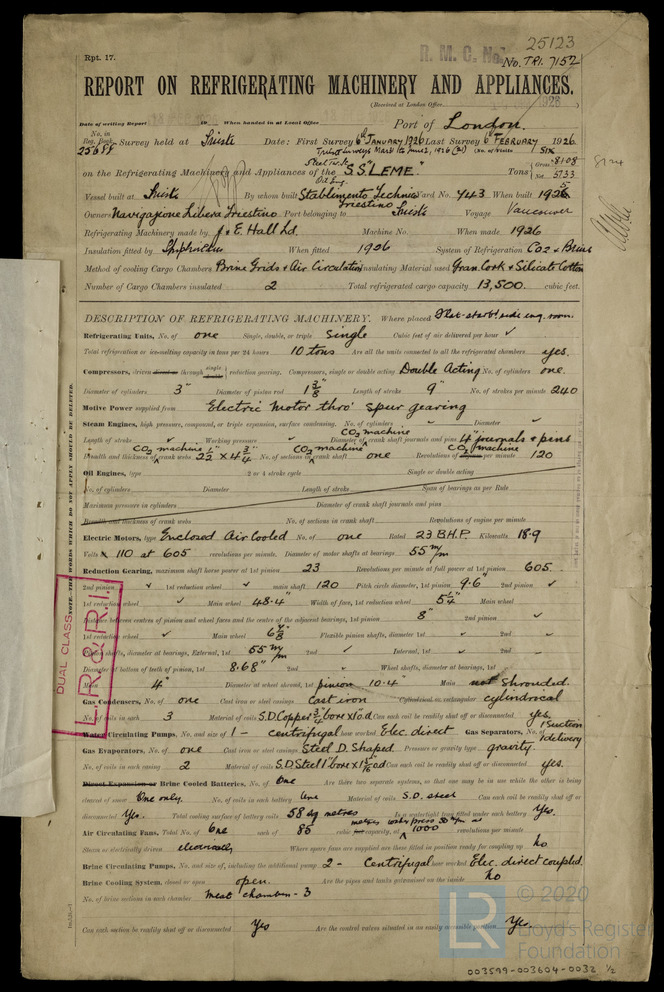 25123
Rpt. 17.
R. M. C. No.
No. TRI. 7152
REPORT ON REFRIGERATING MACHINERY AND APPLIANCES.
(Received at London Office 1926)
Date of writing Report 19 When handed in at Local Office
Port of London.
No. in Reg. Book
Survey held at Trieste Date: First Survey 6th JANUARY 1926 Last Survey 6th FEBRUARY 1926
(No. of Visits SIX
on the Refrigerating Machinery and Appliances of the S.S. "LEME." Tons Gross 8108 Net 5733
Vessel built at Trieste By whom built Stabilimento Tecnico Triestino Yard No. 743 When built 1925
Owners Navigazione Libera Triestino Port belonging to Trieste Voyage Vancouver
Refrigerating Machinery made by J & E. Hall Ld. Machine No. When made 1926
Insulation fitted by Shipbuilders When fitted 1926 System of Refrigeration CO2 & Brine
Method of cooling Cargo Chambers Brine Grids & Air Circulation Insulating Material used Gran Cork & Silicate Cotton
Number of Cargo Chambers insulated 2 Total refrigerated cargo capacity 13,500. cubic feet.
DESCRIPTION OF REFRIGERATING MACHINERY. Where placed Flat-starbd side eng. room.
Refrigerating Units, No. of one Single, double, or triple Single Cubic feet of air delivered per hour ✓
Total refrigeration or ice-melting capacity in tons per 24 hours 10 tons Are all the units connected to all the refrigerated chambers yes.
Compressors, driven direct or through single double reduction gearing. Compressors, single or double acting Double Acting No. of cylinders one.
Diameter of cylinders 3" Diameter of piston rod 1 3/8 Length of stroke 9" No. of strokes per minute 240
Motive Power supplied from Electric motor thro' spur gearing
Steam Engines, high pressure, compound, or triple expansion, surface condensing. No. of cylinders ✓ Diameter ✓
CO2 machine
Length of stroke ✓ Working pressure ✓ Diameter of crank shaft journals and pins 4" journals & pins
CO2 machine CO2 machine CO2 machine
Breadth and thickness of crank webs 2 1/2 x 4 3/4 No. of sections in crank shaft one Revolutions of per minute 120
Oil Engines, type 2 or 4 stroke cycle Single or double acting
No. of cylinders Diameter Length of stroke Span of bearings as per Rule
Maximum pressure in cylinders Diameter of crank shaft journals and pins
Breadth and thickness of crank webs No. of sections in crank shaft Revolutions of engine per minute
Electric Motors, type Enclosed Air Cooled No. of one Rated 23 B.H.P. Kilowatts 18.9
Volts 110 at 605 revolutions per minute. Diameter of motor shafts at bearings 55 m/m
Reduction Gearing, maximum shaft horse power at 1st pinion 23 Revolutions per minute at full power at 1st pinion 605.
2nd pinion ✓ 1st reduction wheel ✓ main shaft 120 Pitch circle diameter, 1st pinion 9.6" 2nd pinion ✓
1st reduction wheel ✓ Main wheel 48.4" Width of face, 1st reduction wheel 5 1/4" Main wheel
Distance between centres of pinion and wheel faces and the centre of the adjacent bearings, 1st pinion 8" 2nd pinion ✓
1st reduction wheel ✓ Main wheel Flexible pinion shafts, diameter 1st ✓ 2nd ✓
Pinion shafts, diameter at bearings, External, 1st 55 m/m 2nd ✓ Internal, 1st ✓ 2nd ✓
Diameter at bottom of teeth of pinion, 1st 8.68" 2nd Wheel shafts, diameter at bearings, 1st
Main 4" Diameter at wheel shroud, 1st pinion 10.4" Main not shrouded.
Gas Condensers, No. of one Cast iron or steel casings Cast iron Cylindrical or rectangular cylindrical
No. of coils in each 3 Material of coils S.D. Copper Can each coil be readily shut off or disconnected yes.
Water Circulating Pumps, No. and size of 1 - centrifugal how worked Elec. direct Gas Separators, No. of 1 Suction 1 delivery
Gas Evaporators, No. of one Cast iron or steel casings Steel D. Shaped Pressure or gravity type gravity
No. of coils in each casing 2 Material of coils S.D. Steel Can each coil be readily shut off or disconnected yes.
Direct Expansion or Brine Cooled Batteries, No. of One Are there two separate systems, so that one may be in use while the other is being
cleared of snow One only. No. of coils in each battery One Material of coils S.D. steel Can each coil be readily shut off or
disconnected Yes. Total cooling surface of battery coils 58 sq metres Is a watertight tray fitted under each battery Yes.
Air Circulating Fans, Total No. of One each of 85 cubic feet capacity, at 1000 revolutions per minute
Steam or electrically driven electrically Where spare fans are supplied are these fitted in position ready for coupling up no
Brine Circulating Pumps, No. and size of, including the additional pump 2 - Centrifugal how worked Elec. direct coupled.
Brine Cooling System, closed or open open. Are the pipes and tanks galvanised on the inside no
No. of brine sections in each chamber meat chamber - 3
Can each section be readily shut off or disconnected Yes Are the control valves situated in an easily accessible position Yes.
NOTE. THE WORDS WHICH DO NOT APPLY SHOULD BE DELETED.
DUAL CLASS
L.R. & R.I.
© 2020
LR
Lloyd's Register
Foundation
003599-003604-0032 1/2